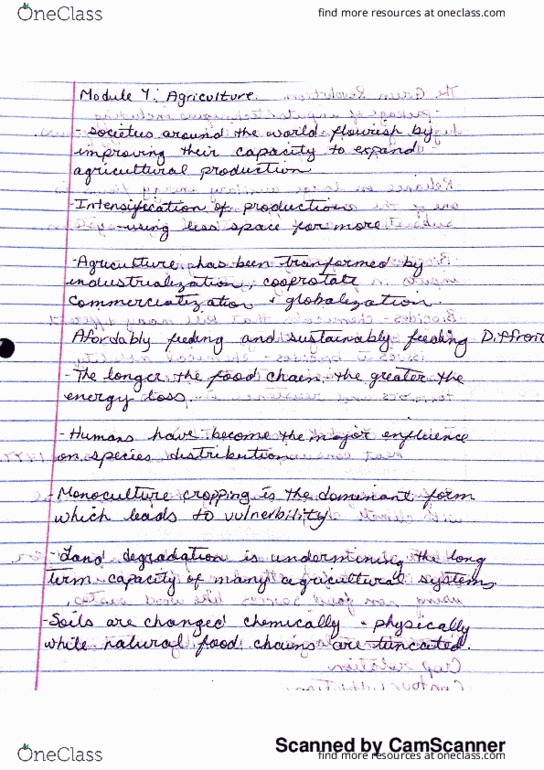 OneClass
find more resources at oneclass.com
Module 4: Agriculture.
- Societies around the world flourish by
improving their capacity to expand
agricultural production
- Intensification of production
- using less space for more.
- Agriculture has been tranformed by
industrialization, cooprotate
Commercialization + globalization.
Affordably feeding and sustainably feeding
- The longer the food chain the greater the
energy loss.
- Humans have become the major enfluence
on species distribution
- Monoculture cropping is the dominant form
which leads to vulnerbility
- Land degradation is undermining the long
term capacity of many agricultural systems
- Soils are changed chemically + physically
while natural food chains are truncated.
Scanned by CamScanner
OneClass
find more resources at oneclass.com